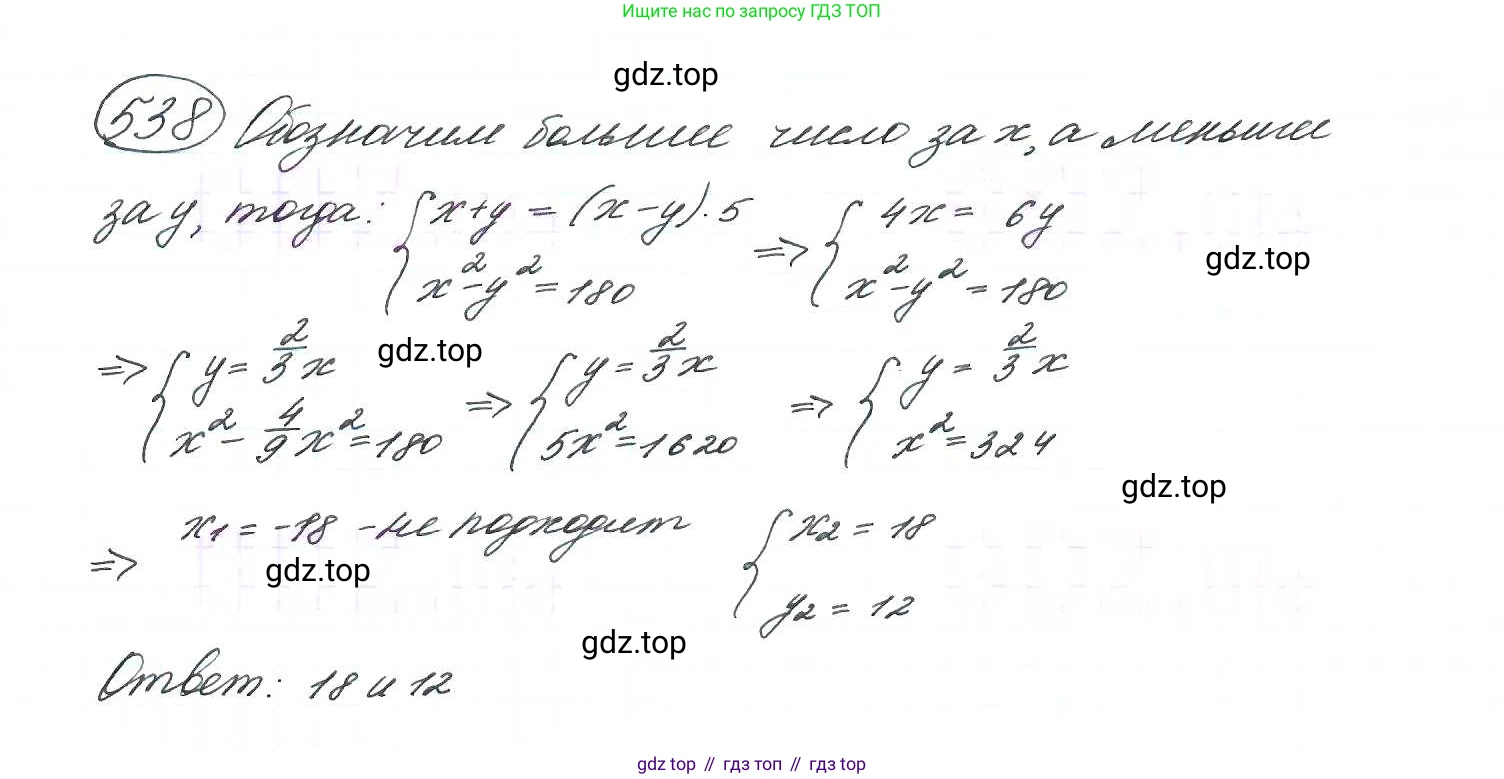 Ищите нас по запросу ГДЗ ТОП
gdz.top
538 Обозначим большее число за x, а меньшее
за y, тогда: { x+y = (x-y)·5 ; x²-y²=180 => { 4x = 6y ; x²-y²=180
gdz.top
=> { y = 2/3 x ; x² - 4/9 x² = 180 => { y = 2/3 x ; 5x²=1620 => { y = 2/3 x ; x²=324
gdz.top
gdz.top
=> x₁ = -18 - не подходит { x₂ = 18 ; y₂ = 12
gdz.top
gdz.top
Ответ: 18 и 12
gdz.top // гдз топ // гдз top